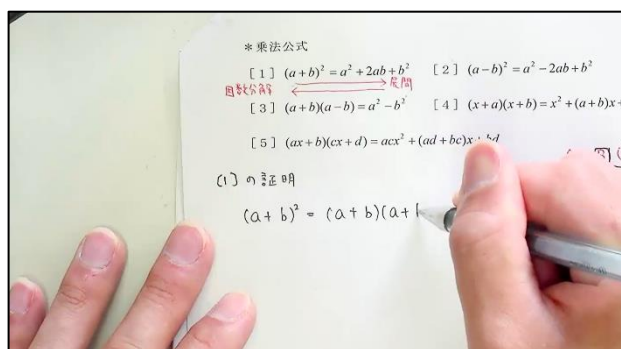 ＊乗法公式
[1] (a+b)² = a² + 2ab + b² [2] (a−b)² = a² − 2ab + b²
因数分解 展開
[3] (a+b)(a−b) = a² − b² [4] (x+a)(x+b) = x² + (a+b)x +
[5] (ax+b)(cx+d) = acx² + (ad+bc)x + bd
[1] の証明
(a+b)² = (a+b)(a+